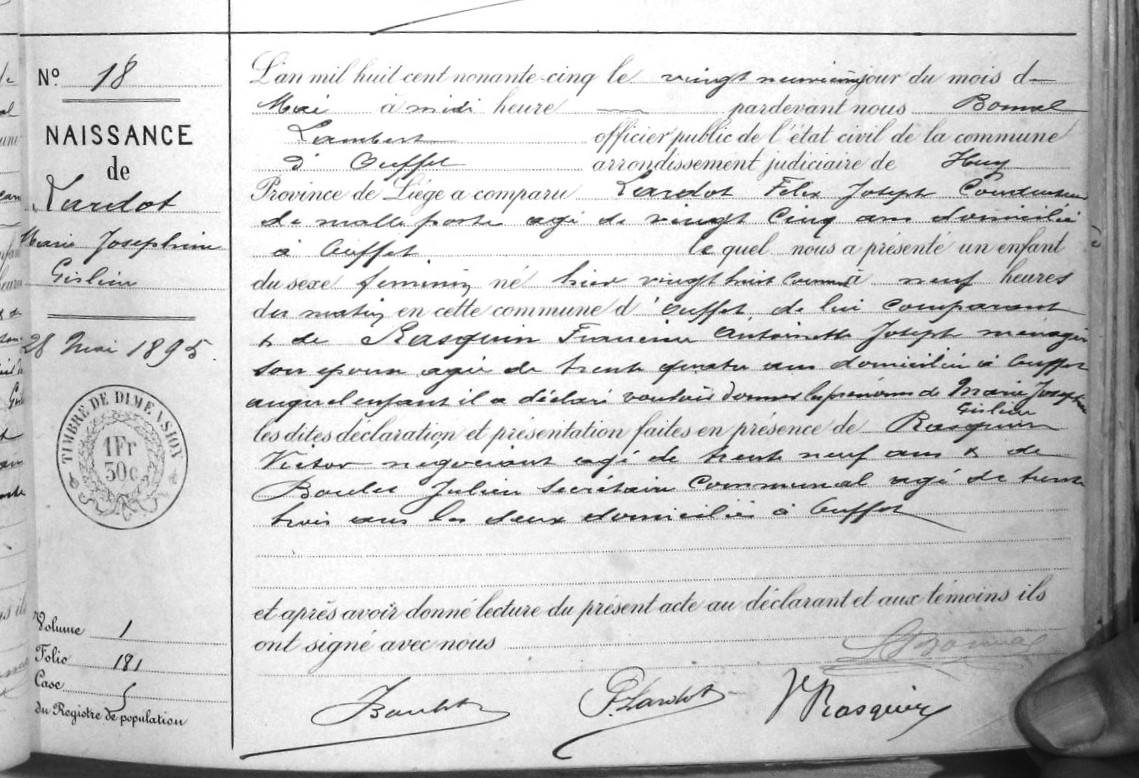 N° 18
NAISSANCE
de
Lardot
Marie Josephine
Gislin
28 Mai 1895.
TIMBRE DE DIMENSION
1Fr
30c
Volume 1
Folio 181
Case 5
du Registre de population
L'an mil huit cent nonante-cinq le vingt neuvième jour du mois d
Mai à midi heure pardevant nous Bonmal
Lambert officier public de l'état civil de la commune
d' Ouffet arrondissement judiciaire de Huy
Province de Liége a comparu Lardot Felix Joseph Conducteur
de malle poste agé de vingt cinq ans domicilié
à Ouffet lequel nous a présenté un enfant
du sexe feminin né hier vingt huit courant à neuf heures
du matin en cette commune d' Ouffet, de lui comparant
& de Rasquin Francine Antoinette Joseph menagère
son epouse agée de trente quatre ans domiciliée à Ouffet
auquel enfant il a déclaré vouloir donner les prénoms de Marie Josephine
Gislin
les dites déclaration et présentation faites en présence de Rasquin
Victor negociant agé de trente neuf ans & de
Boulet Julien Secrétaire Communal agé de trente
trois ans les deux domiciliés à Ouffet
et après avoir donné lecture du présent acte au déclarant et aux témoins ils
ont signé avec nous
LBonmal
JBoulet F.Lardot Vr Rasquin